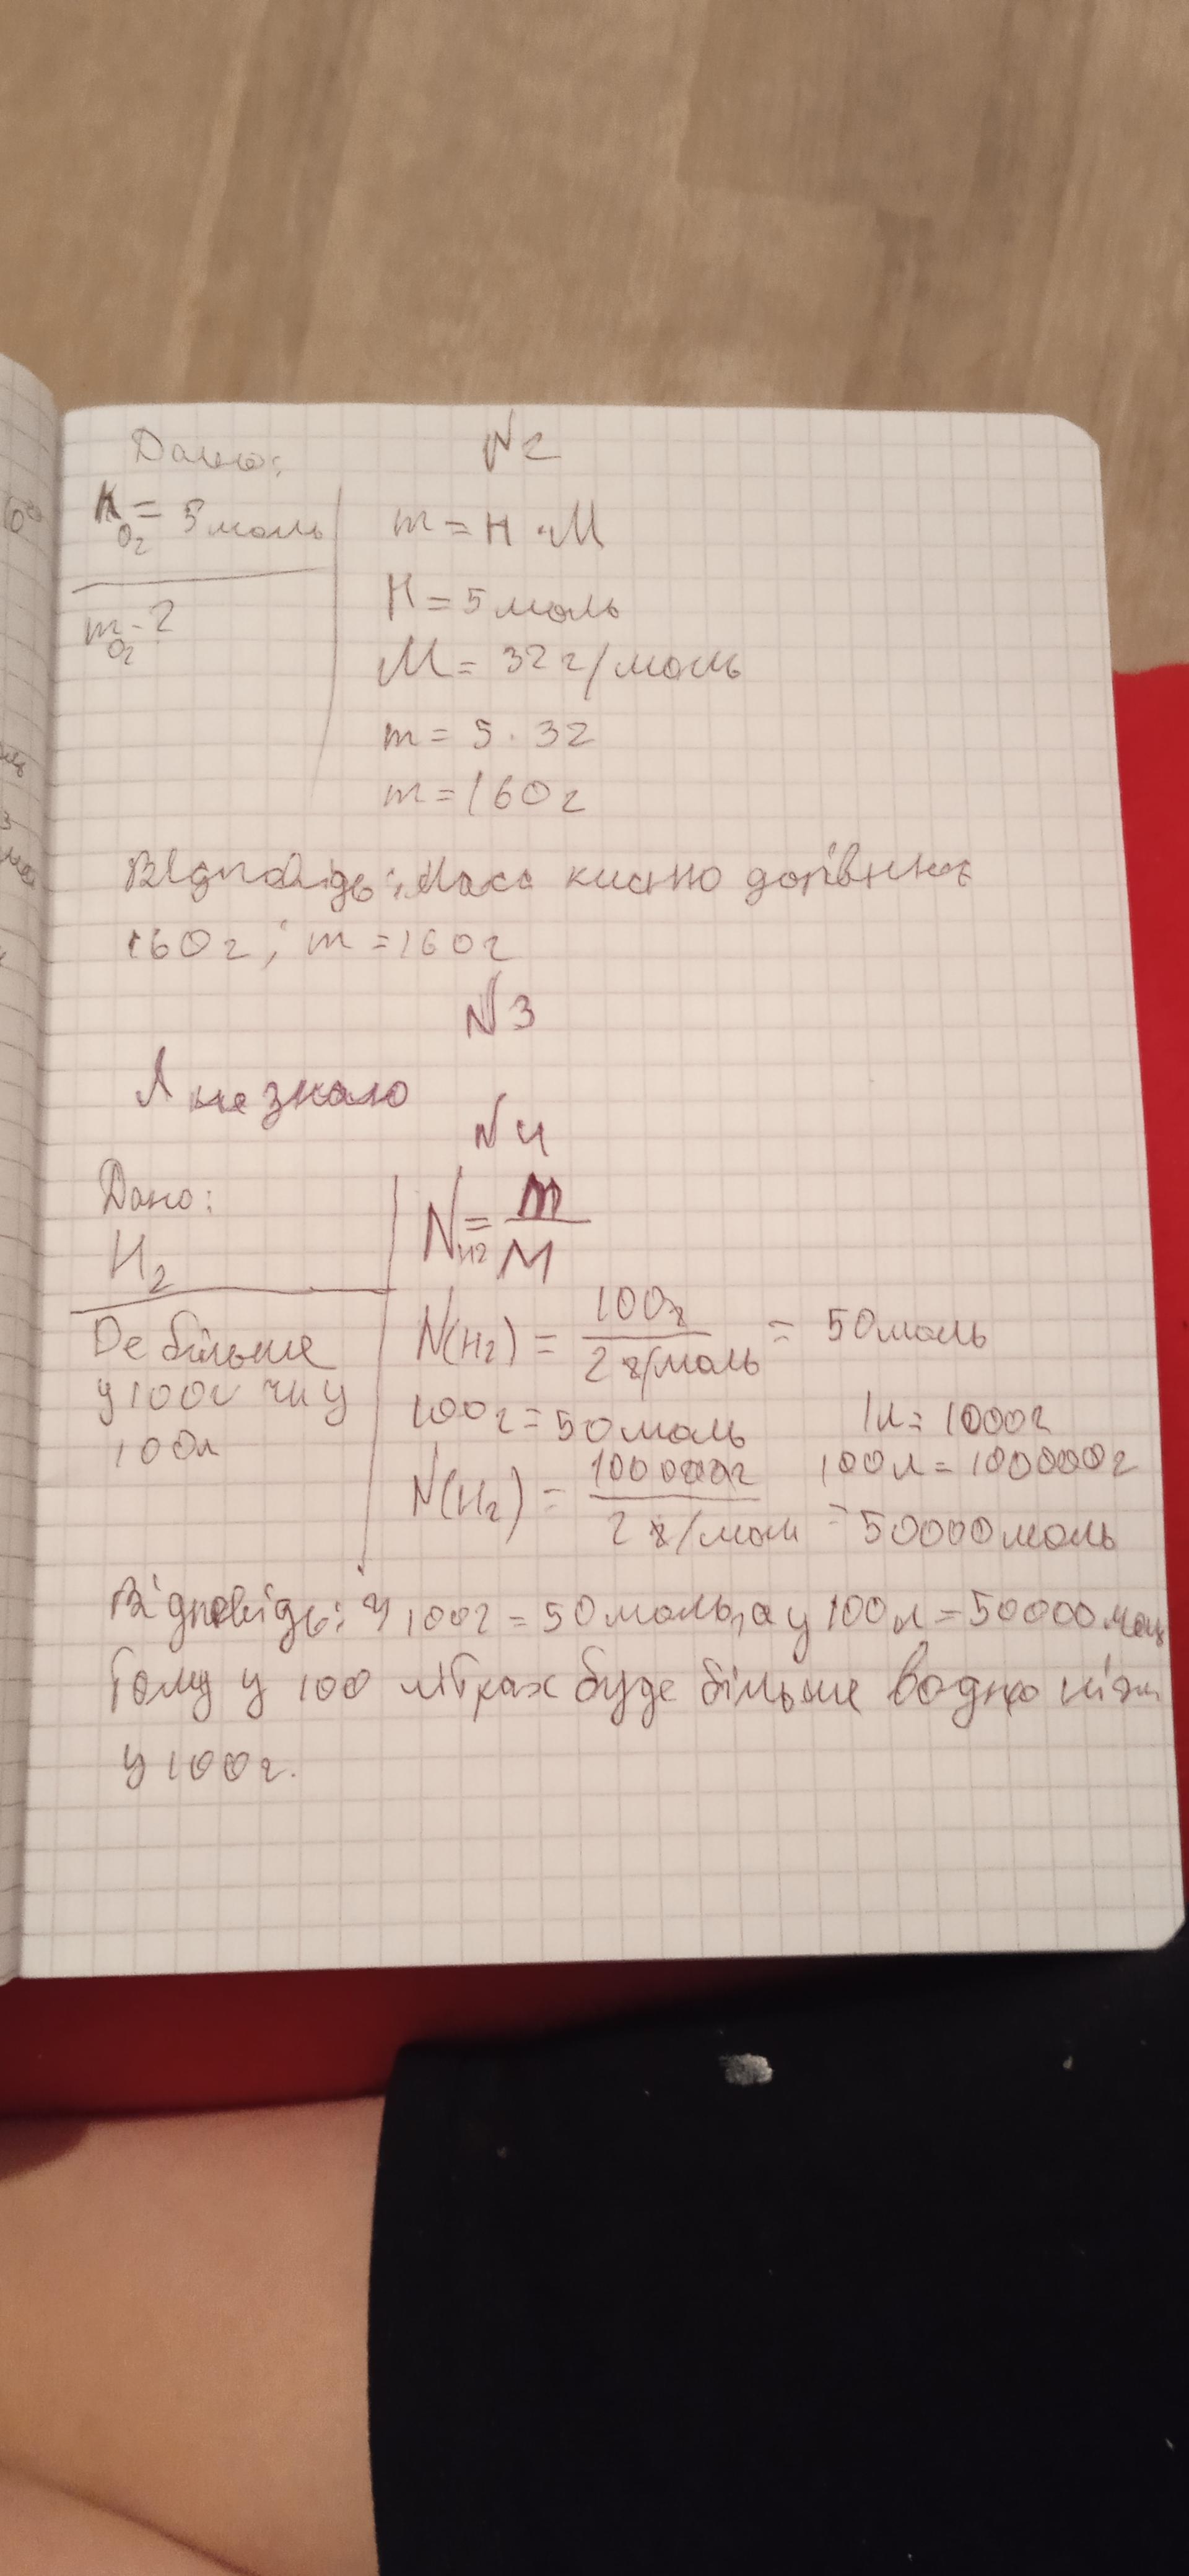 Дано:
N2
H O2 = 5 моль
m = H · M
m O2 - ?
H = 5 моль
M = 32 г/моль
m = 5 · 32
m = 160 г
Відповідь: Маса кисню дорівнює
160 г; m = 160 г
N3
Я не знаю
N4
Дано:
H2
N H2 = m / M
Де більше
у 100г чи у
100л
N(H2) = 100г / 2 г/моль = 50 моль
100г = 50 моль 1л = 1000г
100л = 100000г
N(H2) = 100000г / 2 г/мол = 50000 моль
Відповідь: У 100г = 50 моль, а у 100л = 50000
Тому у 100 літрах буде більше водню ніж
у 100г.